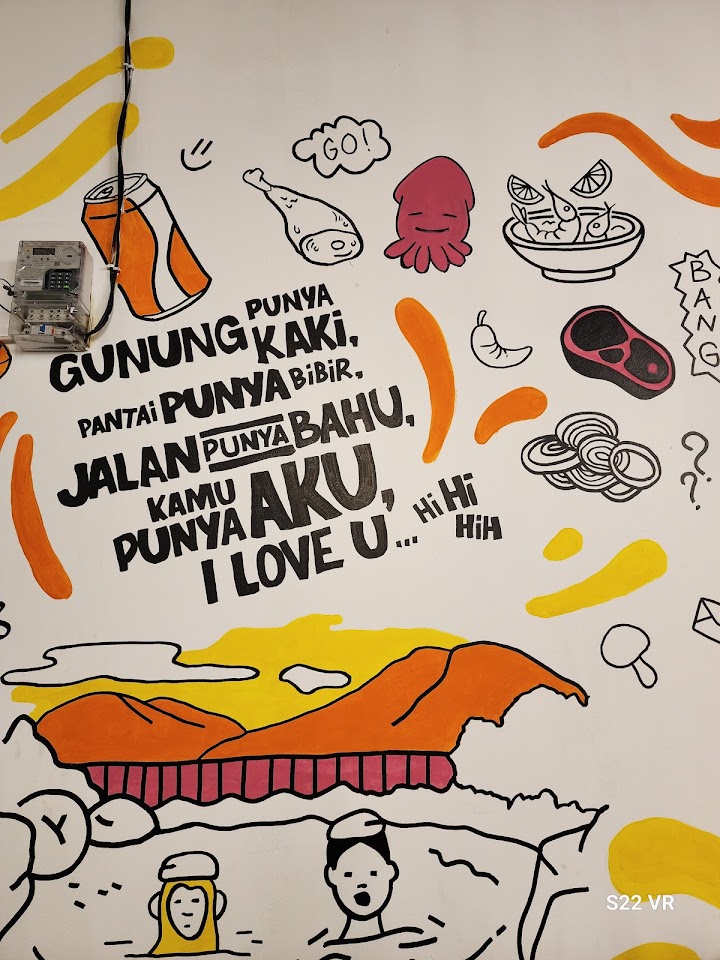 GO!
PUNYA
GUNUNG KAKi,
PANTAi PUNYA BiBiR,
JALAN PUNYA BAHU,
KAMU
PUNYA AKU,
I LOVE U... Hi Hi
HiH
BANG
??
Y
S22 VR